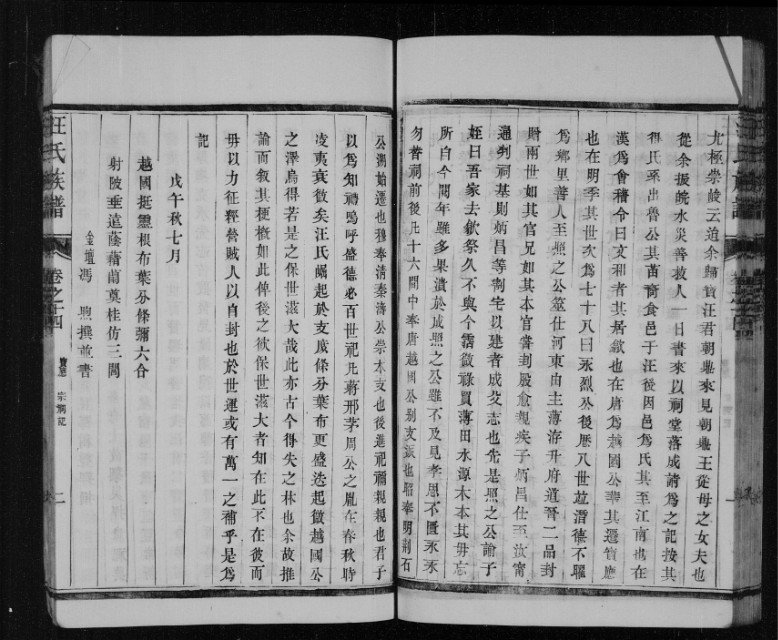 尤極崇峻云迨余歸實汪君朝鼎來見朝鼎王從母之女夫也
從余振皖水災善救人一日書來以祠堂落成請為之記按其
得氏系出魯公其苗裔食邑于汪後因邑為氏其至江南也在
漢為會稽令曰文和者其居歙也在唐為越國公華其遷實應
也在明季其世次為七十八曰永烈公後歷八世竝潛德不曜
為鄉里善人至照之公筮仕河東由主薄洊升府道晉二品封
贈兩世如其官兄如其本官審訓殷愈親疾子炳昌仕至汝甯
通判祠基則炳昌等割宅以建者成父志也先是照之公諭子
姪曰吾家去歙祭久不與今霑微祿買薄田水源木本其毋忘
所自今閱年雖多果潰於成照之公雖不及見孝思不匱永永
勿替祠前後凡十六間中奉唐越國公别支派也昭奉明荆石
公溯始遷也穆奉清秦濤公崇本支也後進祀禰親親也君子
以為知禮嗚呼盛德必百世祀凡蔣邢茅周公之胤在春秋時
凌夷衰微矣汪氏崛起於支庶條分葉布更盛迭起微越國公
之澤烏得若是之保世滋大哉此亦古今得失之林也余故推
論而叙其梗概如此俾後之欲保世滋大者知在此不在彼而
毋以力征經營賊人以自封也於世運或有萬一之補乎是為
記
戊午秋七月
越國挺靈根布葉分條彌六合
射陂垂遠蔭藉蘭奠桂仿三閭
金壇馮煦撰並書
汪氏族譜
卷之十四
寶應
宗祠記
二